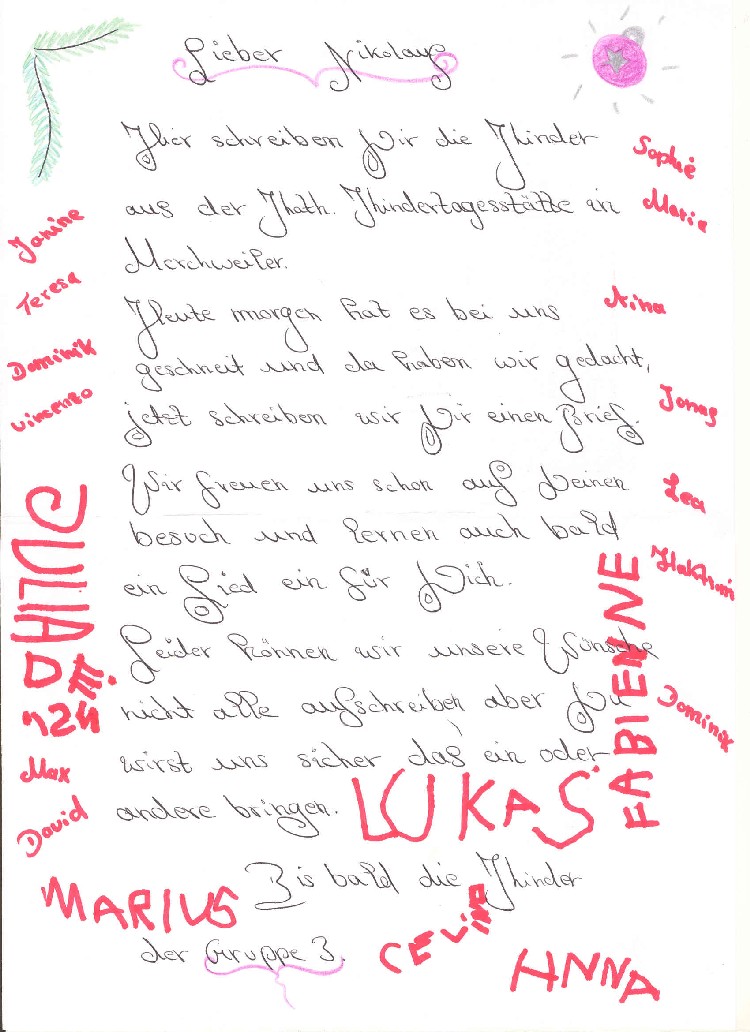 Lieber Nikolaus
Hier schreiben Dir die Kinder
Sophie
aus der Kath. Kindertagesstätte in
Maria
Janine
Merchweiler.
Teresa
Heute morgen hat es bei uns
Nina
Dominik
geschneit und da haben wir gedacht,
Vincenzo
jetzt schreiben wir Dir einen Brief.
Jonas
Wir freuen uns schon auf Deinen
Lea
besuch und lernen auch bald
JULIA
ein Lied ein für Dich.
FABIENNE
Leider können wir unsere Wünsche
nicht alle aufschreiben aber Du
Dominik
wirst uns sicher das ein oder
Max
andere bringen.
LUKAS
David
Bis bald die Kinder
MARIUS
der Gruppe 3.
CELINA
ANNA